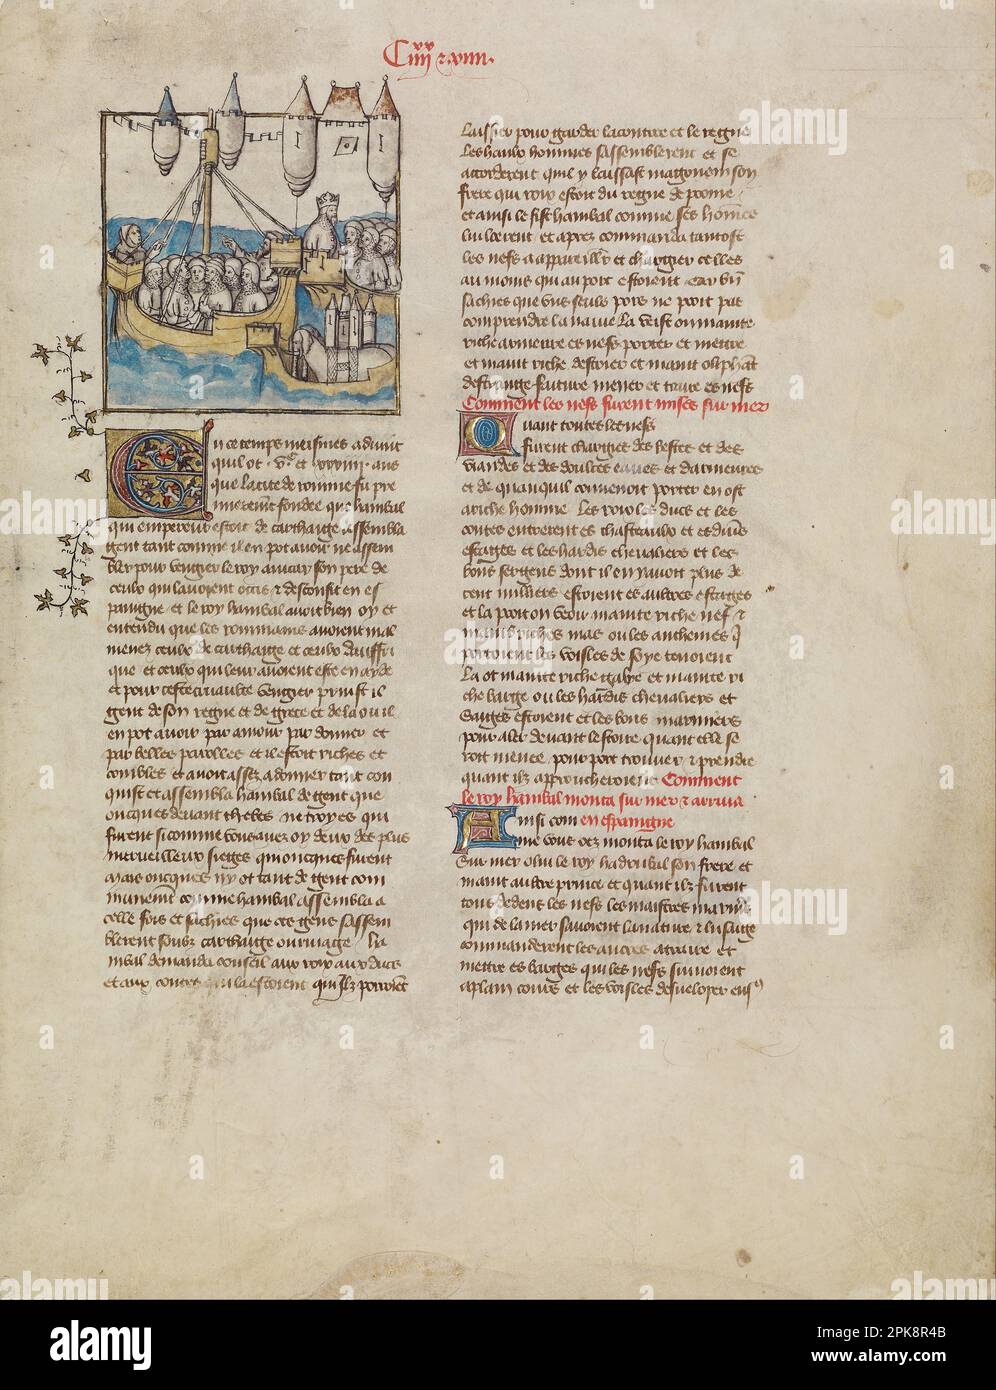 En ce temps meismes adont
quil ot . v.c et xxxiiii . ans
que la cite de romme fu pre
mierement fondee que hanibal
qui empereur estoit de carthaige assembla
gent tant comme il en pot avoir ne assem
bler pour vengier le roy amicar son pere de
ceulx qui lavoient occis et desconfit en es
paingne et le roy hanibal avoit bien oy et
entendu que les rommains avoient mal
menez ceulx de carthaige et ceulx dauffri
que et ceulx qui leur avoient este en ayde
et pour ceste cruaulte vengier prinst il
gent de son regne et de grece et de la ou il
en pot avoir par amour par donner et
par belles parolles et il estoit riches et
combles et avoit assez a donner tant con
quist et assembla hanibal de gent que
oncques devant thebes ne troyes qui
furent si comme vous avez oy deux des plus
merveilleux sieges qui oncques furent
Mais oncques ny ot tant de gent com
munement comme hanibal assembla a
celle fois et sachies que ces gens sassem
blerent soubz carthaige ou rivage Ha
nibal demanda conseil aux roys aux ducs
et aux contes qui la estoient quilz porroient
laissier pour garder la contree et le regne
Les haulx hommes sassemblerent et se
accorderent quil y laissast magonem son
frere qui roy estoit du regne de
et ainsi le fist hanibal comme ses hommes
lui loerent et apres commanda tantost
les nefs a appareillier et chargier celles
au moins qui au port estoient Car bien
sachies que uns seuls pors ne pooit pas
comprendre la navie La veist on mainte
riche armeure es nefs porter et mettre
et maint riche destrier et maint oliphant
destrange faiture mener et traire es nefs
Comment les nefs furent mises sur mer
Quant toutes les nefs
furent chargies des bestes et des
viandes et des doulces eaues et darmeures
et de quanquil convenoit porter en ost
a riche homme Les roys les ducs et les
contes entrerent es chasteaulx et es divers
estages et les hardis chevaliers et les
bons sergens dont il en y avoit plus de
cent milliers estoient es aultres estages
et la pooit on veoir mainte riche nef et
mains riches mas ou les anthennes qui
portoient les voisles de soye tenoient
La ot mainte riche galye et mainte ri
che barge ou les hardis chevaliers et
saiges estoient et les bons mariniers
pour aler devant lestoire quant elle se
roit menee pour port trouver et prendre
quant ilz approucheroient Comment
le roy hanibal monta sur mer et arriva
Ainsi com en espaingne
me vous oez monta le roy hanibal
sur mer o lui le roy hadrubal son frere et
maint aultre prince et quant ilz furent
tous dedens les nefs les maistres mariniers
qui de la mer savoient la nature et lusaige
commanderent les ancres a traire et
mettre es barges qui les nefs suivoient
a plain cours et les voisles desveloper
alamy
Image ID: 2PK8R4B
www.alamy.com